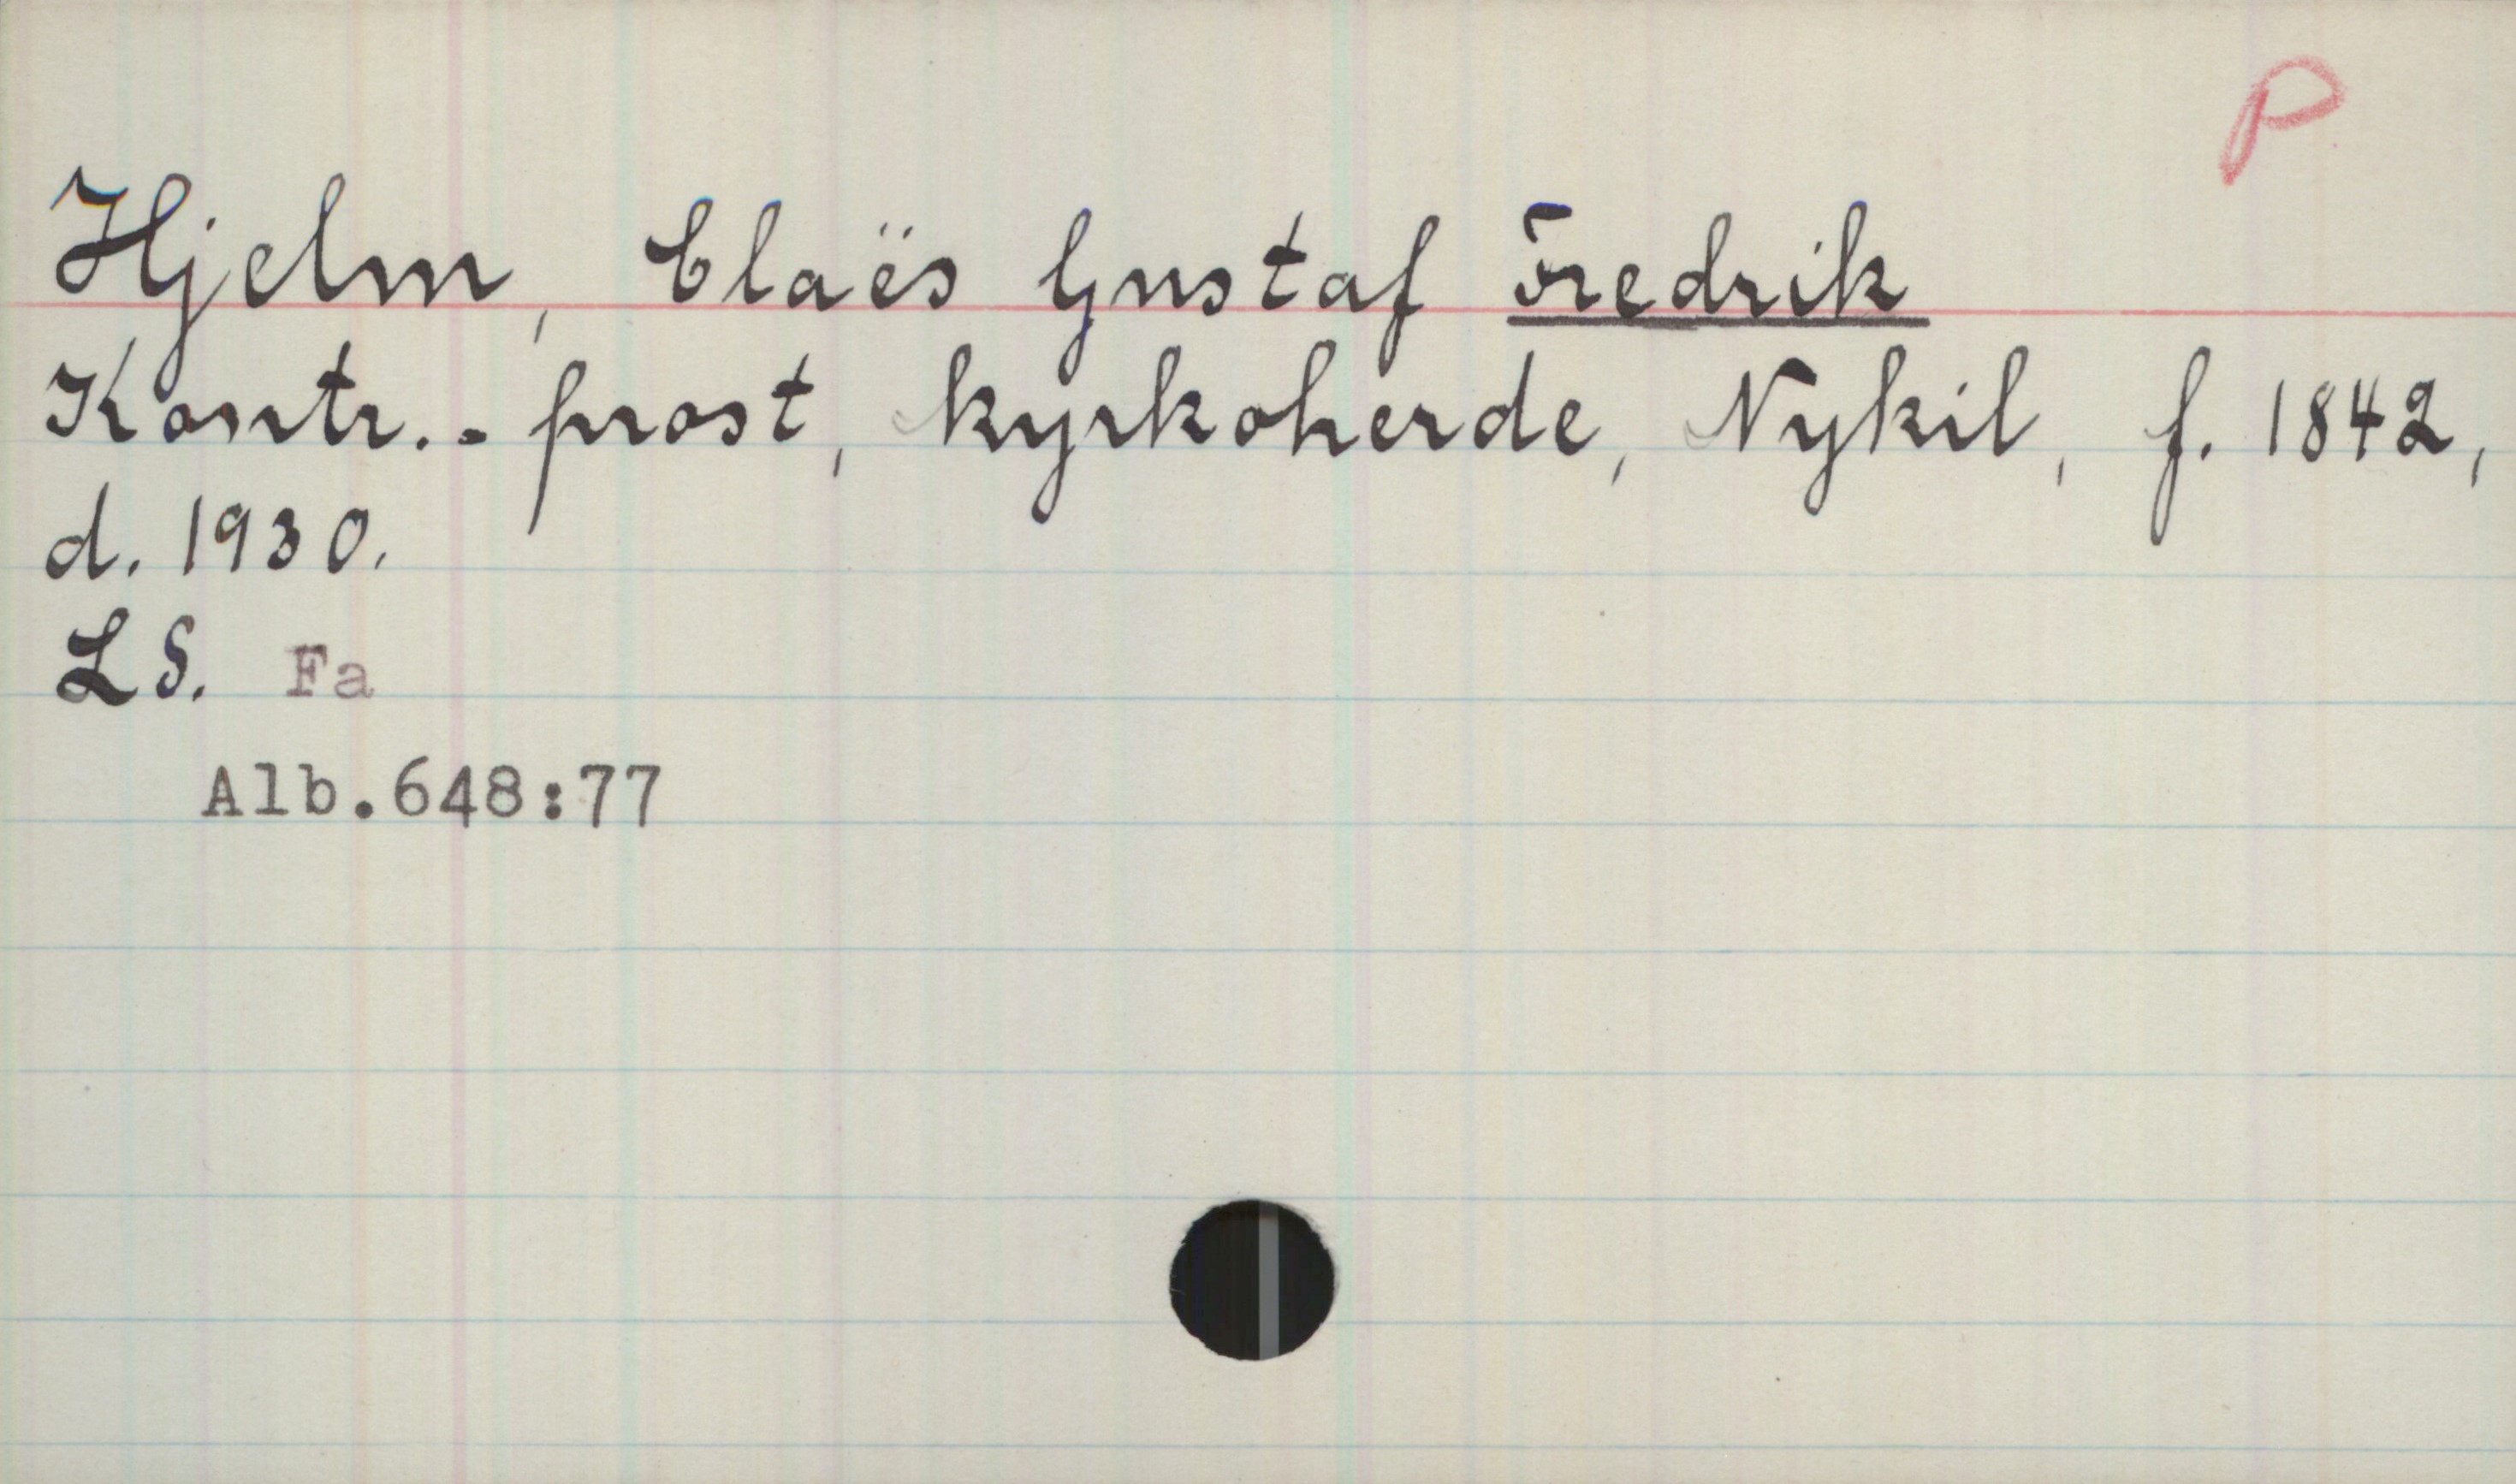 P
Hjelm, Claës Gustaf Fredrik
Kontr.-prost, kyrkoherde, Nykil, f. 1842,
d. 1930.
LS. Fa
Alb.648:77